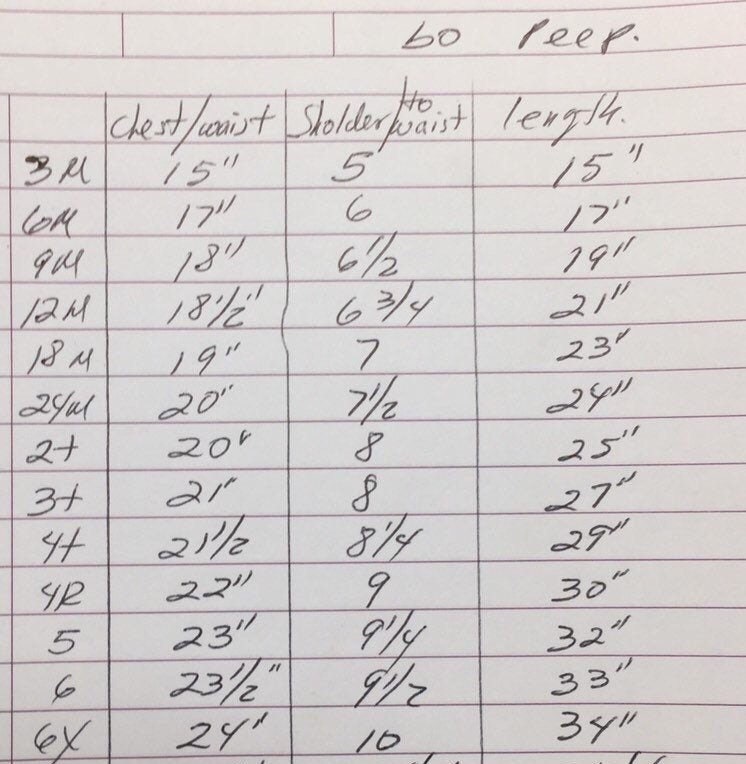 bo Peep.
Chest/waist Sholder/to waist length.
3M 15" 5 15"
6M 17" 6 17"
9M 18" 6 1/2 19"
12M 18 1/2" 6 3/4 21"
18M 19" 7 23"
24M 20" 7 1/2 24"
2t 20" 8 25"
3t 21" 8 27"
4t 21 1/2 8 1/4 29"
4R 22" 9 30"
5 23" 9 1/4 32"
6 23 1/2" 9 1/2 33"
6X 24" 10 34"